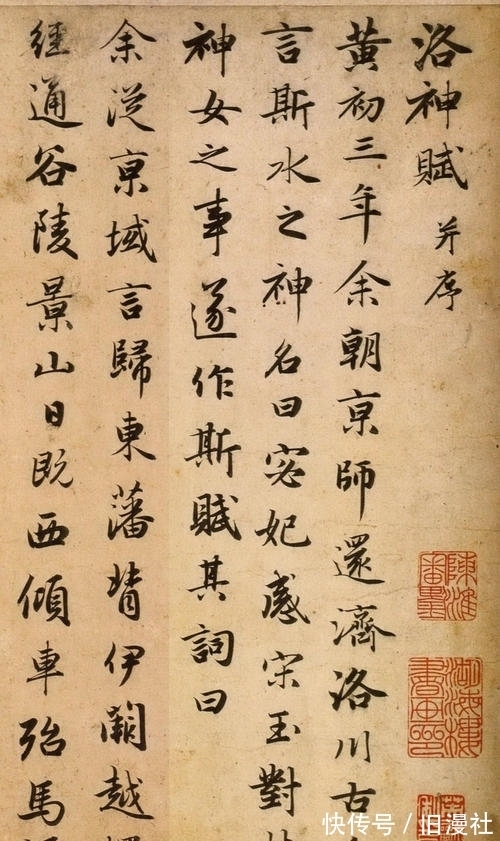 洛神賦 并序
黄初三年余朝亰師還濟洛川古
言斯水之神名曰宓妃感宋玉對
神女之事遂作斯賦其詞曰
余從亰域言歸東藩背伊闕越
經通谷陵景山日既西傾車殆馬
快传号/旧漫社